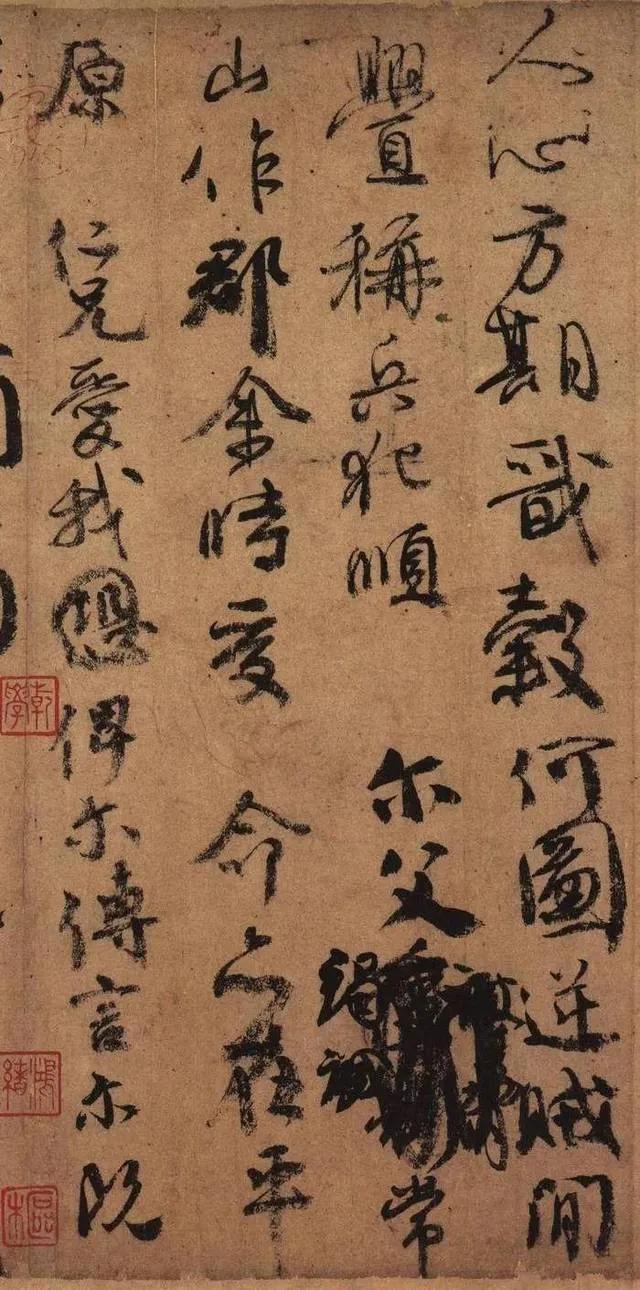 人心方期戩穀何圖逆賊間
釁稱兵犯順 尒父竭誠常
山作郡余時受 命亦在平
原 仁兄愛我俾尒傳言尒既